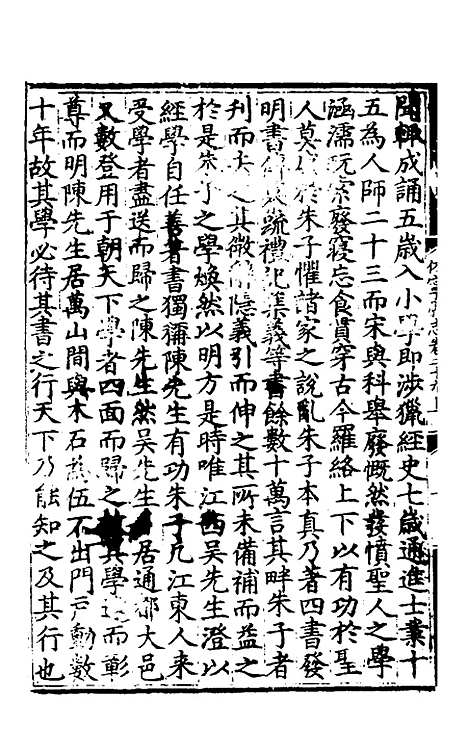 聞輒成誦五歲入小學即涉獵經史七歲通進士業十
五為人師二十三而宋與科舉廢慨然發憤聖人之學
涵濡玩索廢寢忘食貫穿古今羅絡上下以有功於聖
人莫於朱子懼諸家之說亂朱子本真乃著四書發
明書傳疏禮記集義等書餘數十萬言其畔朱子者
刊而去之其微辭隱義引而伸之其所未備補而益之
於是朱子之學煥然以明方是時唯江西吳先生澄以
經學自任善著書獨稱陳先生有功朱子凡江東人來
受學者盡送而歸之陳先生然吳先生居通都大邑
又數登用于朝天下學者四面而歸之其學遠而彰
尊而明陳先生居萬山間與木石為伍不出門戶動數
十年故其學必待其書之行天下乃能知之及其行也